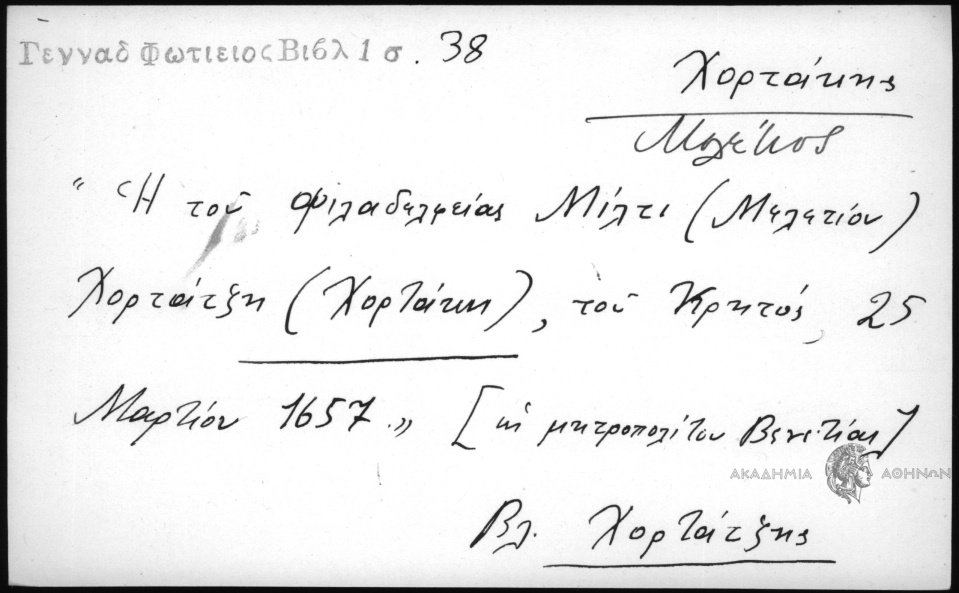 Γενναδ Φωτιειος Βιβλ 1 σ. 38
Χορτάκης
"Ἡ τοῦ Φιλαδελφείας Μίλτι (Μελετίου)
Χορτάτζη (Χορτάκη), τοῦ Κρητός, 25
Μαρτίου 1657." [ἡ μητροπολίτου Βενετίας]
ΑΚΑΔΗΜΙΑ ΑΘΗΝΩΝ
Βλ. Χορτάτζης